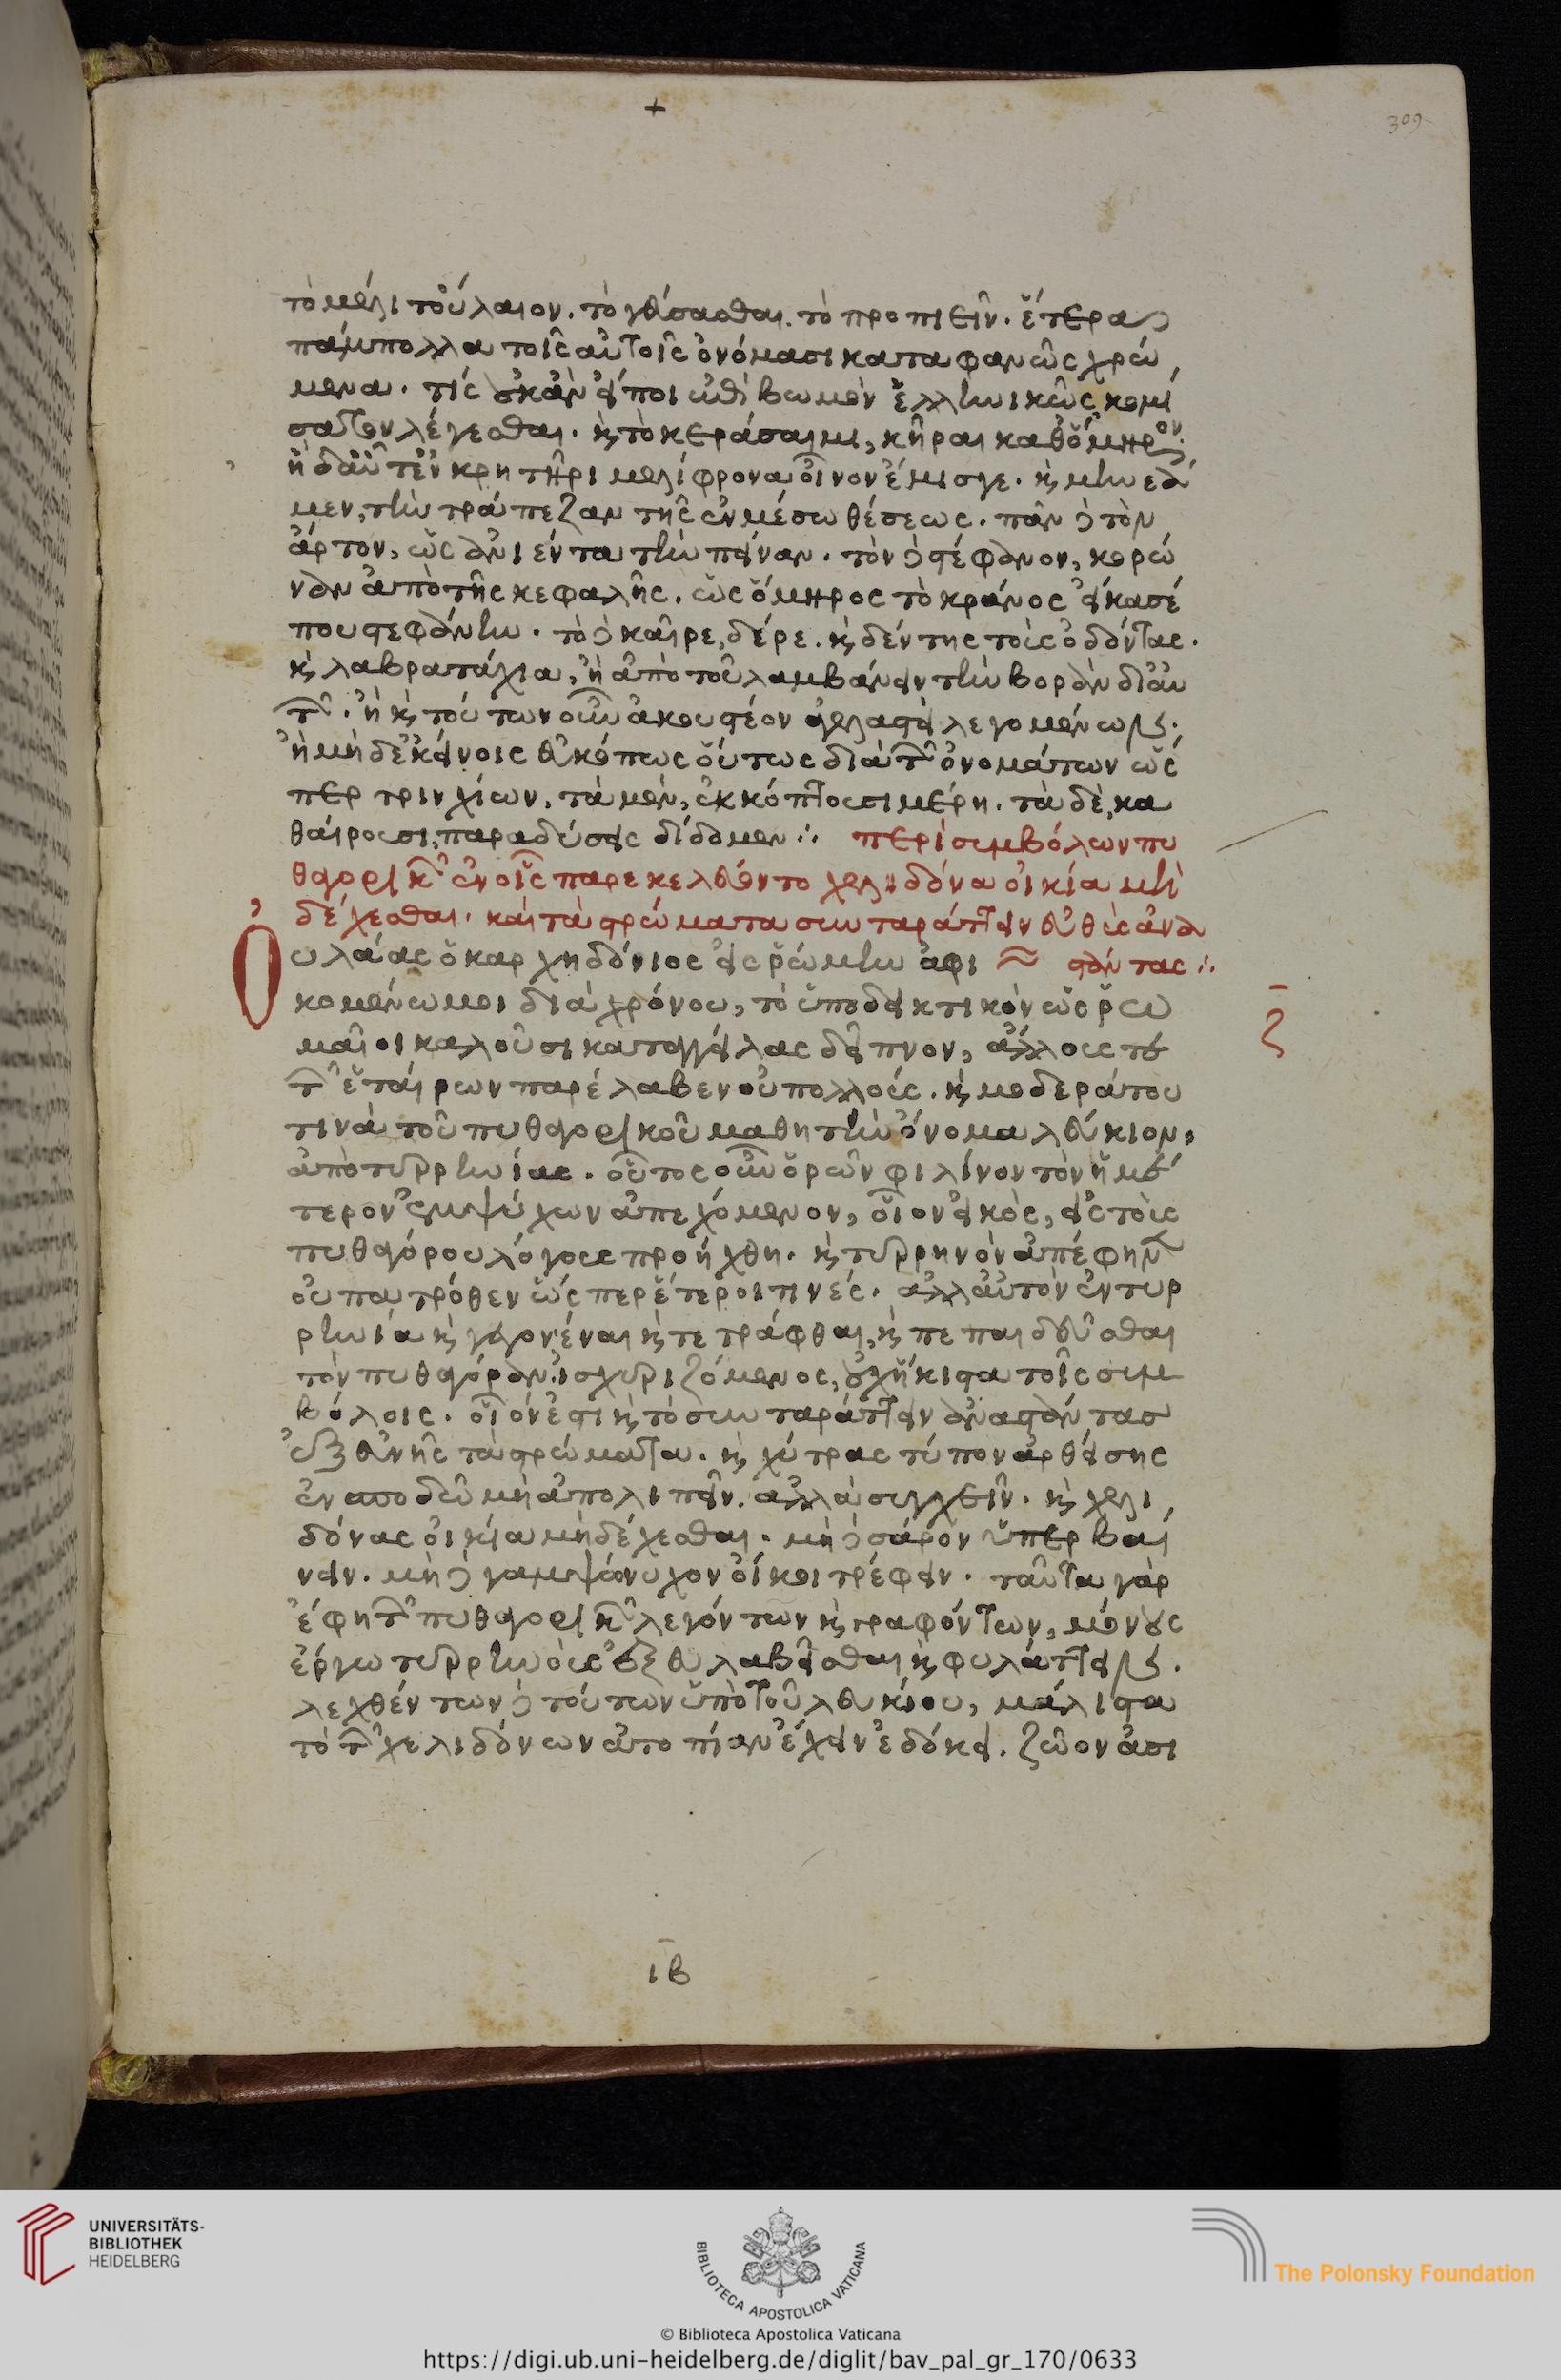 +
309
τὸ μέλι τοὔλαιον. τὸ γεύσασθαι. τὸ προπιεῖν. ἕτερα δὲ
πάμπολλα τοῖς αὐτοῖς ὀνόμασι καταφανῶς χρώ
μενα. τίς οὐκ ἂν εἴποι ἐπὶ βωμὸν ἑλληνικῶς κομί
σατον λέγεσθαι. καὶ τὸ κεράσαιμι, κῆραι καθ' ὅμηρον.
ἡ δ' αὖτ' ἐν κρητῆρι μελίφρονα οἶνον ἔμισγε. καὶ μὴν
μεν, τὴν τράπεζαν τῆς ἐν μέσω θέσεως. πᾶν δὲ τὸν
ἄρτον, ὡς ἀνιέντα τὴν πεῖναν. τὸν δὲ στέφανον, κορώ
ναν ἀπὸ τῆς κεφαλῆς. ὡς ὅμηρος τὸ κράνος εἴκασέ
που στεφάνην. τὸ δὲ καῖρε, δέρε. καὶ δέντης τοὶς ὀδόντας.
καὶ λαβρα στόχια, ἢ ἀπὸ τοῦ λαμβάνειν τὴν βορὰν δι' αὐ
τῶν. ἢ καὶ τούτων οὖν ἀκουστέον ἀγελαστεὶ λεγομένων.
ἢ μὴ δ' ἐκείνοις εὐκόπως οὕτως διὰ τῶν ὀνομάτων ὥς
περ τριγχίων, τὰ μὲν, ἐκκόπτοσσι μέρη. τὰ δὲ, κα
θαίροσσι, παραδύσεις δίδομεν ∴ περὶ συμβόλων πυ
θαγορικῶν ἐν οἷς παρεκελεύοντο χελιδόνα οἰκία μὴ
δέχεσθαι. καὶ τὰ στρώματα συνταράττειν εὐθὶς ἀνα
Ὀ υλάας ὁ καρχηδόνιος εἰς ῥώμην ἀφι ~ στάντας ∴
κομένω μοι διὰ χρόνου, τὸ ὑποδεικτικὸν ὡς ῥω
μαῖοι καλοῦσι καταγγείλας δεῖπνον, ἄλλους τε
τῶν ἑταίρων παρέλαβεν οὐ πολλοὶς. καὶ μοδεράτου
τινὰ τοῦ πυθαγορικοῦ μαθητὴν ὄνομα λεύκιον,
ἀπὸ τυρρηνίας. οὗτος οὖν ὁρῶν φιλίνον τὸν ἡμέ
τερον ἐμψύχων ἀπεχόμενον, οἷον εἰκὸς, εἰς τοὶς
πυθαγόρου λόγους προήχθη. καὶ τυρρηνὸν ἀπέφηνεν
οὐ πατρόθεν ὥσπερ ἕτεροι τινές. ἀλλ' αὐτὸν ἐν τυρ
ρηνία καὶ γεγονέναι καὶ τετράφθαι, καὶ πεπαιδεῦσθαι
τὸν πυθαγόραν. ἰσχυριζόμενος, οὐχ ἥκιστα τοῖς συμ
βόλοις. οἷόν ἐστι καὶ τὸ συνταράττειν ἀναστάντασ
ἐξ εὐνῆς τὰ στρώματα. καὶ χύτρας τύπον ἀρθείσης
ἐν σποδῶ μὴ ἀπολιπεῖν. ἀλλὰ συγχεῖν. καὶ χελι
δόνας οἰκία μὴ δέχεσθαι. μὴ δὲ σάρον ὑπερβαί
νειν. μὴ δὲ γαμψώνυχον οἴκοι τρέφειν. ταῦτα γὰρ
ἔφη τῶν πυθαγορικῶν λεγόντων καὶ γραφόντων, μόνους
ἔργω τυρρηνοὶς ἐξευλαβεῖσθαι καὶ φυλάττειν.
λεχθέντων δὲ τούτων ὑπὸ τοῦ λευκίου, μάλιστα
τὸ τῶν χελιδόνων ἀτοπίαν ἔχειν ἐδόκει. ζῶον ἀσι
ζ
ιβ
UNIVERSITÄTS-
BIBLIOTHEK
HEIDELBERG
BIBLIOTECA APOSTOLICA VATICANA
The Polonsky Foundation
© Biblioteca Apostolica Vaticana
https://digi.ub.uni-heidelberg.de/diglit/bav_pal_gr_170/0633